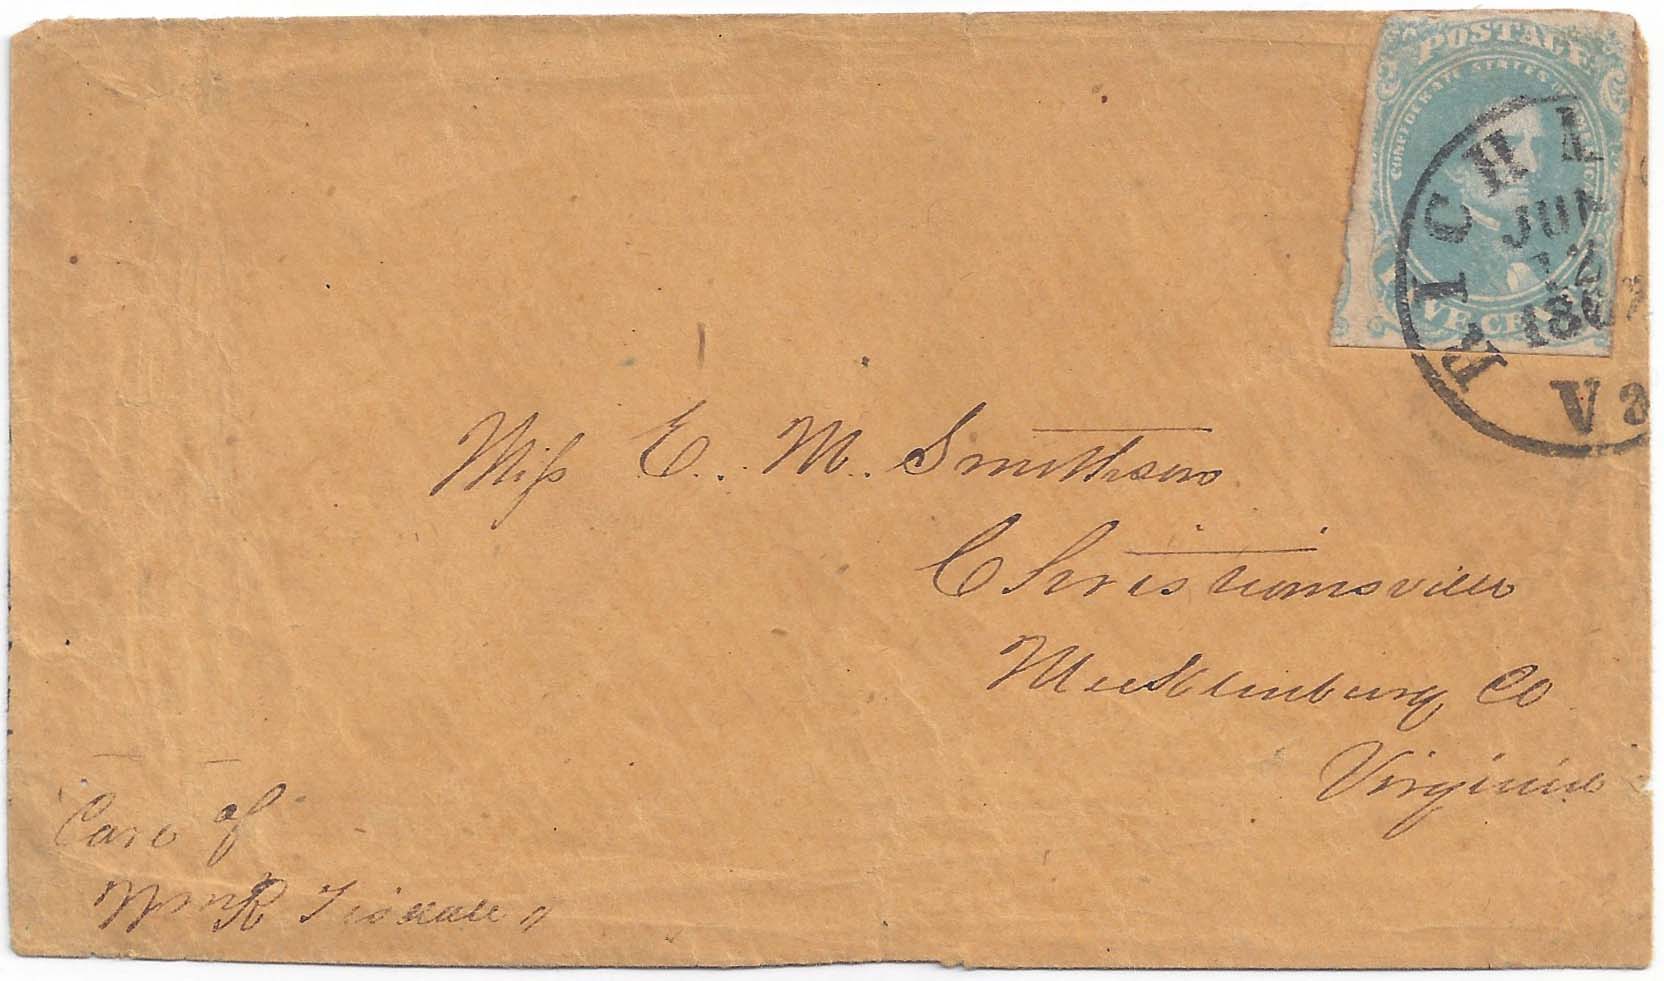 POSTAGE
CONFEDERATE STATES OF AMERICA
VE CEN
RICH
JUN
12
186
Va
Miss E. M. Smithson
Christiansville
Mecklenburg Co
Virginia
Care of
Wm R Tisdale